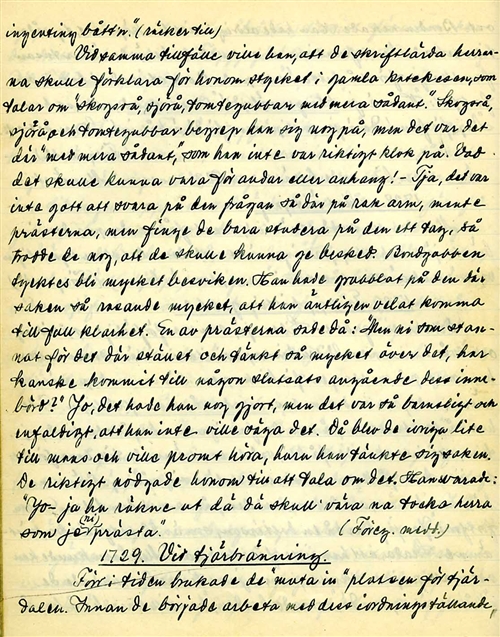 ingenting bått'n." (räcker till)
Vid samma tillfälle ville han, att de skriftlärda herrar-
na skulle förklara för honom stycket i gamla katekesen, som
talar om "skogsrå, sjörå, tomtegubbar med mera sådant." Skogsrå,
sjörå och tomtegubbar begrep han sig nog på, men det var det
där "med mera sådant," som han inte var riktigt klok på. Vad
det skulle kunna vara för andar eller anhang! – Tja, det var
inte gott att svara på den frågan så där på rak arm, mente
prästerna, men finge de bara studera på den ett tag, så
trodde de nog, att de skulle kunna ge besked. Bondgubben
tycktes bli mycket besviken. Han hade grubblat på den där
saken så rasande mycket, att han äntligen velat komma
till full klarhet. En av prästerna sade då: "Men ni som stan-
nat för det där stället och tänkt så mycket över det, har
kanske kommit till någon slutsats angående dess inne-
börd?" Jo, det hade han nog gjort, men det var så barnsligt och
enfaldigt, att han inte ville säga det. Då blev de ivriga lite
till mans och ville promt höra, huru han tänkte sig saken.
De riktigt nödgade honom till att tala om det. Han svarade:
"Jo – ja ha räkne ut då då skull' vära na tocka herra
som je (ni) prästa."
(Föreg. medd.)
1729. Vid tjärbränning.
Förr i tiden brukade de "muta in" platsen för tjär-
dalen. Innan de började arbeta med dess iordningställande,